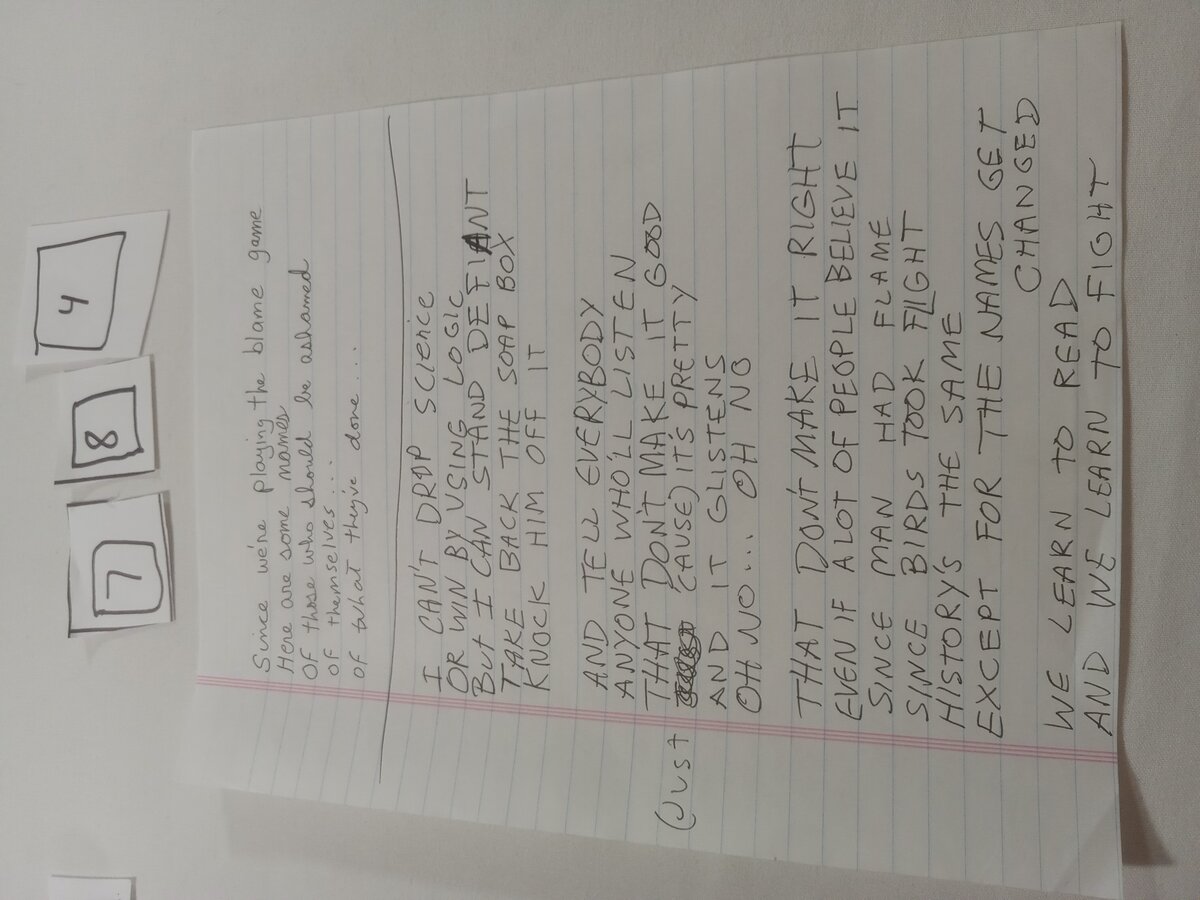 7
8
4
Since we're playing the blame game
Here are some names
Of those who should be ashamed
of themselves...
of what they've done...
I CAN'T DROP SCIENCE
OR WIN BY USING LOGIC
BUT I CAN STAND DEFIANT
TAKE BACK THE SOAP BOX
KNOCK HIM OFF IT
AND TELL EVERYBODY
ANYONE WHO'LL LISTEN
THAT DON'T MAKE IT GOOD
(JUST CAUSE) IT'S PRETTY
AND IT GLISTENS
OH NO... OH NO
THAT DON'T MAKE IT RIGHT
EVEN IF A LOT OF PEOPLE BELIEVE IT
SINCE MAN HAD FLAME
SINCE BIRDS TOOK FLIGHT
HISTORY'S THE SAME
EXCEPT FOR THE NAMES GET
CHANGED
WE LEARN TO READ
AND WE LEARN TO FIGHT